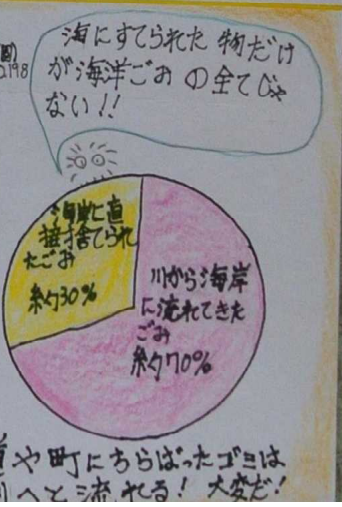 海にすてられた物だけ
が海洋ごおの全てじゃ
ない!!
海岸に直
接捨てられ
たごお
約30%
川から海岸
に流れてきた
ごお
約70%
や町にちらばったゴミは
へと流れる! 大変だ!